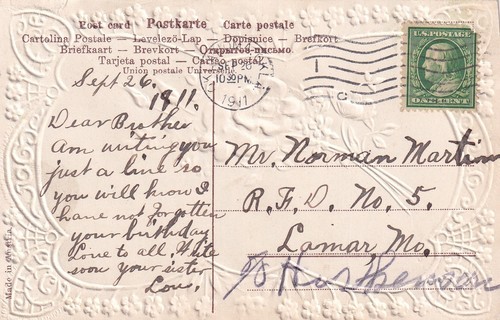 Post card Postkarte Carte postale
Cartolina Postale – Levelező-Lap – Dopisnice – Brefkort
Briefkaart – Brevkort – Открытое письмо
Tarjeta postal – Cartao postal
Union postale Universelle
10 30 PM
1911
U.S. POSTAGE
ONE CENT
Sept 26,
1911.
Dear Brother
Am writing you
just a line so
you will know I
have not forgotten
your birthday
Love to all. Write
soon your sister
Lou.
Mr. Norman Martin
R.F.D. No. 5.
Lamar Mo.
Made in